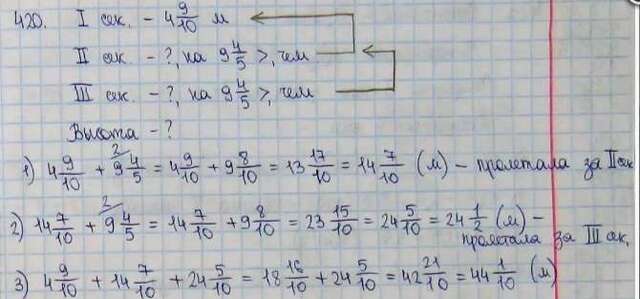 420. I сек. - 4 9/10 м
II сек. - ?, на 9 4/5 >, чем
III сек. - ?, на 9 4/5 >, чем
Высота - ?
1) 4 9/10 + 9 4/5 = 4 9/10 + 9 8/10 = 13 17/10 = 14 7/10 (м) - пролетала за II сек
2) 14 7/10 + 9 4/5 = 14 7/10 + 9 8/10 = 23 15/10 = 24 5/10 = 24 1/2 (м) -
пролетала за III сек,
3) 4 9/10 + 14 7/10 + 24 5/10 = 18 16/10 + 24 5/10 = 42 21/10 = 44 1/10 (м)